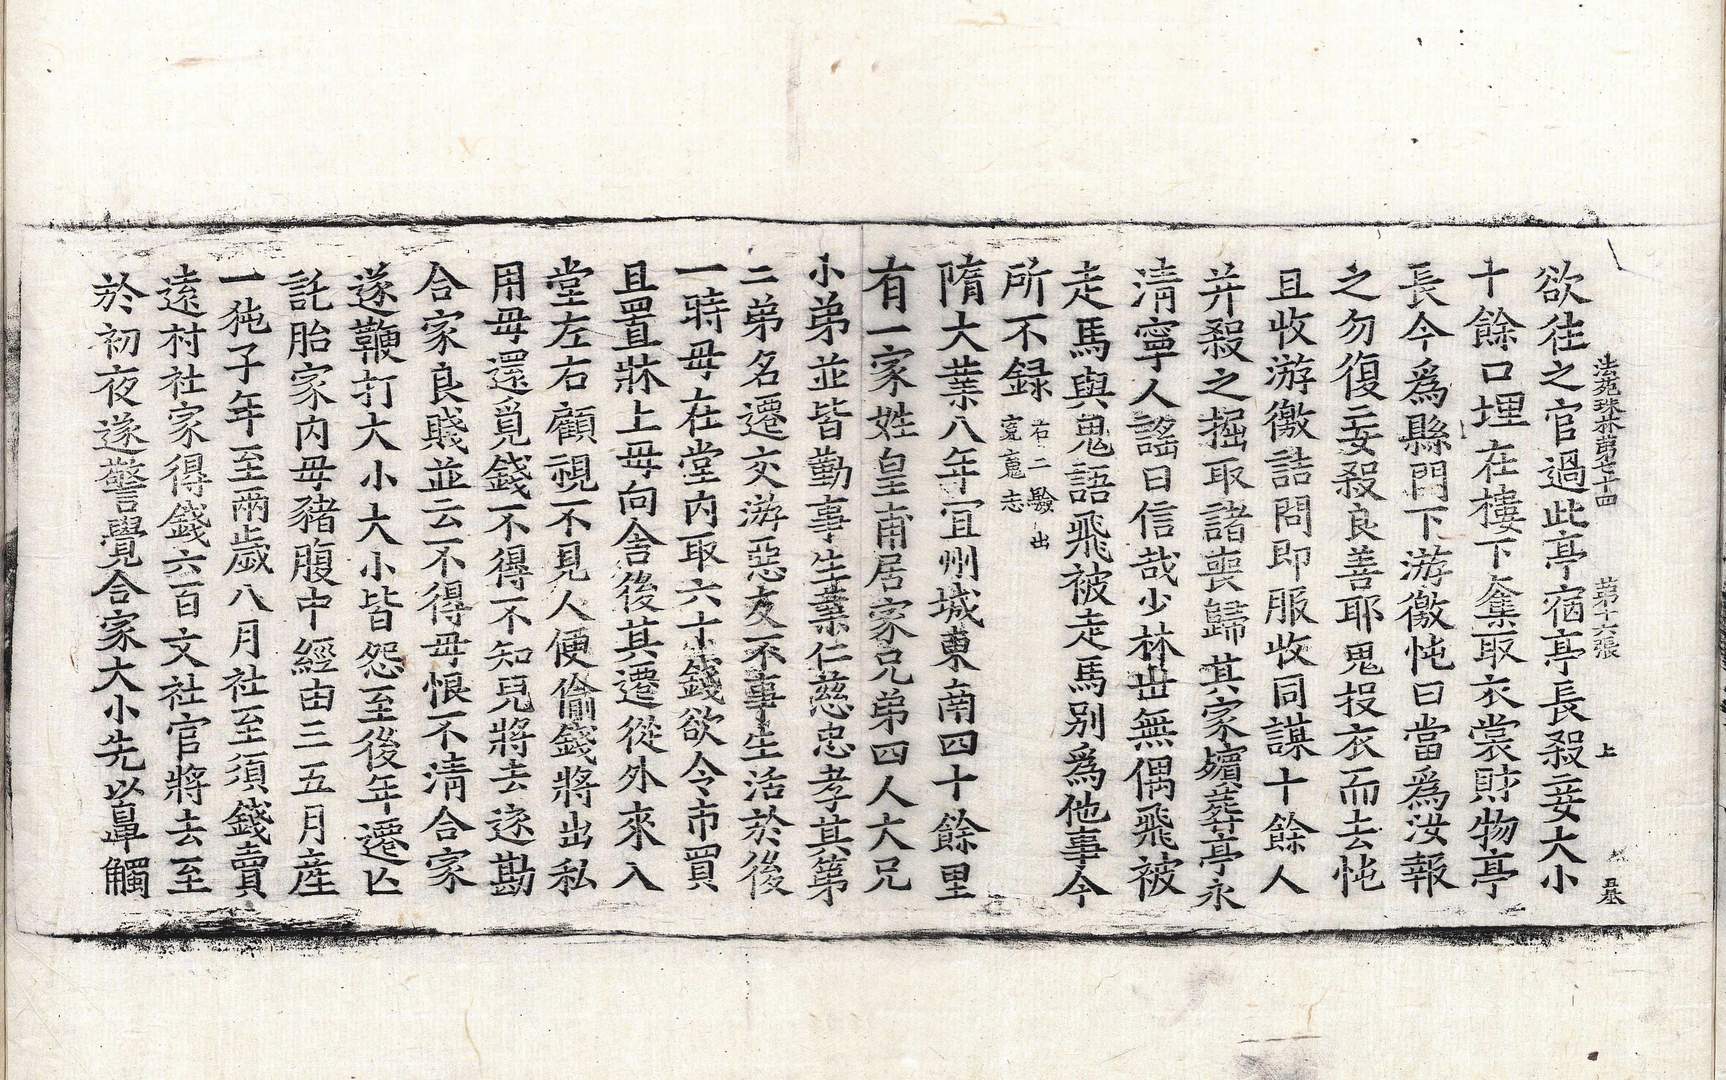 法苑珠林第七十四 第十六張 上
欲往之官過此亭宿亭長殺妾大小
十餘口埋在樓下奪取衣裳財物亭
長今爲縣門下游徼忳曰當爲汝報
之勿復妄殺良善耶鬼投衣而去忳
且收游徼詰問即服收同謀十餘人
并殺之掘取諸喪歸其家殯葬亭永
清寧人謠曰信哉少林世無偶飛被
走馬與鬼語飛被走馬別爲他事今
所不録右二驗出冤魂志
隋大業八年宜州城東南四十餘里
有一家姓皇甫居家兄弟四人大兄
小弟並皆勤事生業仁慈忠孝其第
二弟名遷交游惡友不事生活於後
一時毋在堂內取六十錢欲令市買
且置牀上毋向舍後其遷從外來入
堂左右顧視不見人便偷錢將出私
用毋還覓錢不得不知兒將去遂勘
合家良賤並云不得毋恨不清合家
遂鞭打大小大小皆怨至後年遷亡
託胎家內毋豬腹中經由三五月産
一㹠子年至兩歲八月社至須錢賣
遠村社家得錢六百文社官將去至
於初夜遂警覺合家大小先以鼻觸